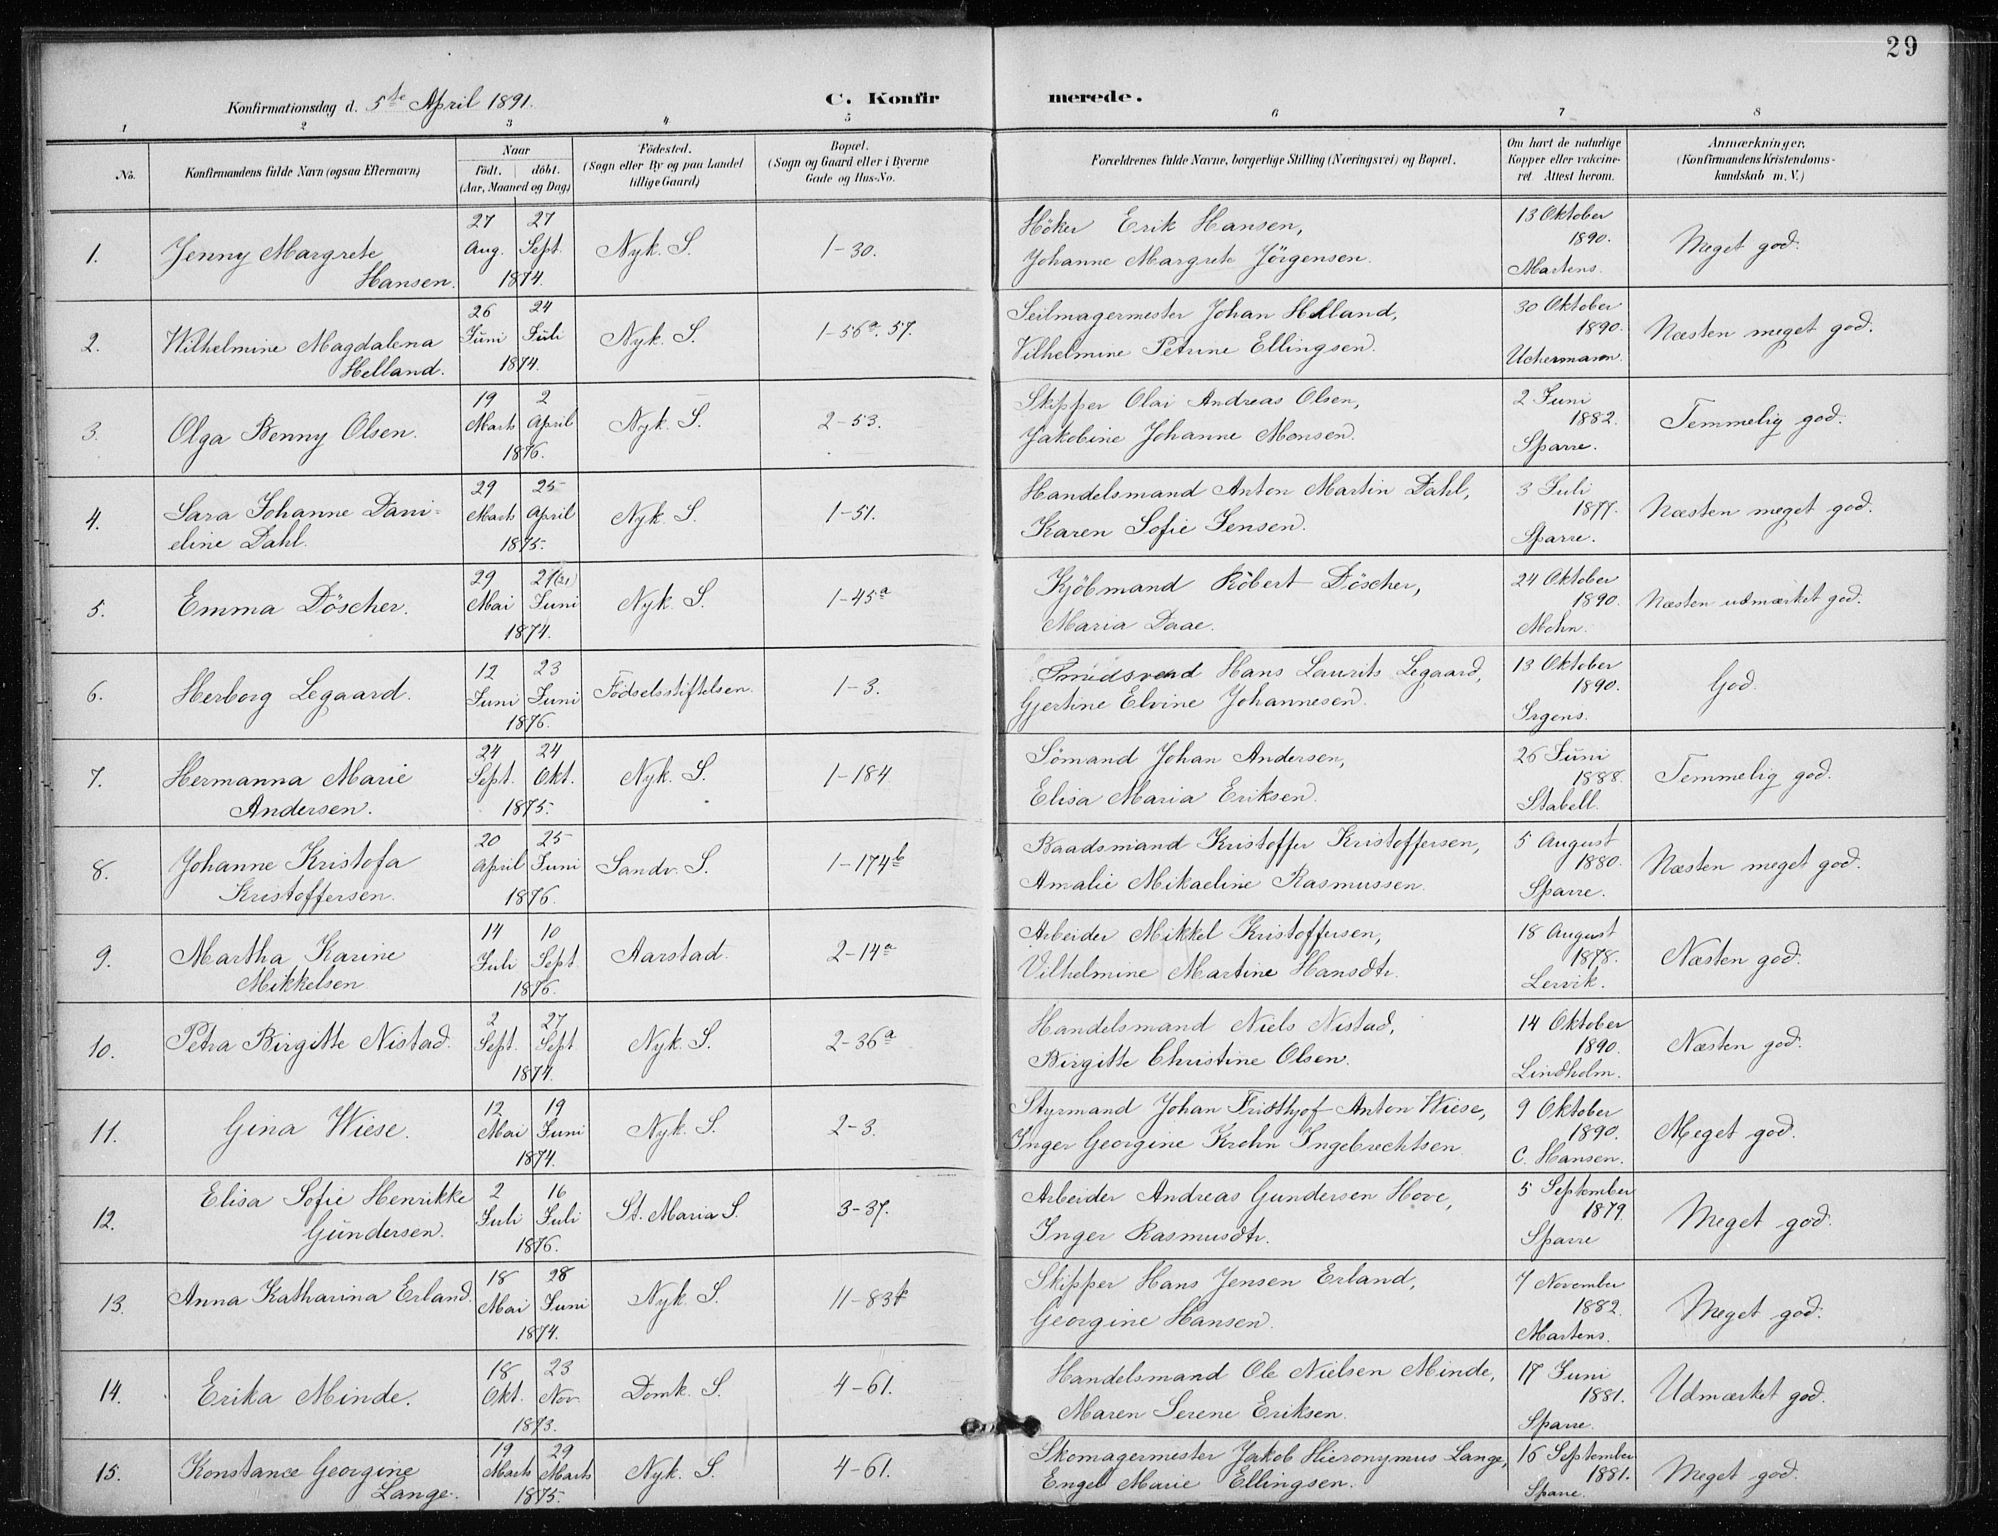 29
Konfirmationsdag d. 5te April 1891.
C. Konfirmerede.
1 2 3 4 5 6 7 8
No.
Konfirmandens fulde Navn (ogsaa Efternavn)
Naar
födt. döbt.
(Aar, Maaned og Dag)
Födested.
(Sogn eller By og paa Landet
tillige Gaard)
Bopæl.
(Sogn og Gaard eller i Byerne
Gade og Hus-No.
Forældrenes fulde Navne, borgerlige Stilling (Næringsvei) og Bopæl.
Om havt de naturlige
Kopper eller vakcine-
ret. Attest herom.
Anmærkninger,
(Konfirmandens Kristendoms-
kundskab m. V.)
1. Jenny Margrete
Hansen.
27 Aug. 27 Sept.
1874.
Nyk. S.
1-30.
Höker Erik Hansen,
Johanne Margrete Jörgensen.
13 Oktober
1890.
Martens.
Meget god.
2. Wilhelmine Magdalena
Helland.
26 Juni 24 Juli
1874.
Nyk. S.
1-56a. 57.
Seilmagermester Johan Helland,
Vilhelmine Petrine Ellingsen.
30 Oktober
1890.
Uchermann.
Næsten meget god.
3. Olga Benny Olsen.
19 Marts 2 April
1876.
Nyk. S.
2-53.
Skipper Olai Andreas Olsen,
Jakobine Johanne Monsen.
2 Juni
1882.
Sparre.
Temmelig god.
4. Sara Johanne Dani-
eline Dahl.
29 Marts 25 April
1875.
Nyk. S.
1-51.
Handelsmand Anton Martin Dahl,
Karen Sofie Jensen.
3 Juli
1877.
Sparre.
Næsten meget god.
5. Emma Döscher.
29 Mai 21 Juni
1874.
Nyk. S.
1-45a
Kjöbmand Robert Döscher,
Maria Daae.
24 Oktober
1890.
Mohn.
Næsten udmærket god.
6. Herborg Legaard.
12 Juni 23 Juni
1876.
Födselsstiftelsen.
1-3.
Smidsvend Hans Laurits Legaard,
Gjertine Elvine Johannesen.
13 Oktober
1890.
Irgens.
God.
7. Hermanna Marie
Andersen.
24 Sept. 24 Okt.
1875.
Nyk. S.
1-184
Sömand Johan Andersen,
Elisa Maria Eriksen.
26 Juni
1888.
Stabell.
Temmelig god.
8. Johanne Kristofa
Kristoffersen.
20 April 25 Juni
1876.
Sandv. S.
1-174b
Baadsmand Kristoffer Kristoffersen,
Amalie Mikaeline Rasmussen.
5 August
1880.
Sparre.
Næsten meget god.
9. Martha Karine
Mikkelsen
14 Juli 10 Sept
1876.
Aarstad.
2-14a
Arbeider Mikkel Kristoffersen,
Vilhelmine Martine Hansdtr.
18 August
1878.
Lervik.
Næsten god.
10. Petra Birgitte Nistad.
2 Sept. 27 Sept
1874.
Nyk. S.
2-36a
Handelsmand Niels Nistad,
Birgitte Christine Olsen.
14 Oktober
1890.
Lindholm.
Næsten god.
11. Gina Wiese.
12 Mai 19 Juni
1874.
Nyk. S.
2-3.
Styrmand Johan Fridthjof Anton Wiese,
Inger Georgine Krohn Ingebrechtsen.
9 Oktober
1890.
C. Hansen.
Meget god.
12. Elisa Sofie Henrikke
Gundersen.
2 Juli 16 Juli
1876.
St. Maria S.
3-37.
Arbeider Andreas Gundersen Hove,
Inger Rasmusdtr.
5 September
1879.
Sparre
Meget god.
13. Anna Katharina Erland.
18 Mai 28 Juni
1874.
Nyk. S.
11-83
Skipper Hans Jensen Erland,
Georgine Hansen.
7 November
1882.
Martens.
Meget god.
14. Erika Minde.
18 Okt. 23 Nov.
1873.
Domk. S.
4-61.
Handelsmand Ole Nielsen Minde,
Maren Serene Eriksen.
17 Juni
1881.
Sparre.
Udmærket god.
15. Konstance Georgine
Lange.
19 Marts 29 Marts
1875.
Nyk. S.
4-61.
Skomagermester Jakob Hieronymus Lange,
Engel Marie Ellingsen.
16 September
1881.
Sparre.
Meget god.